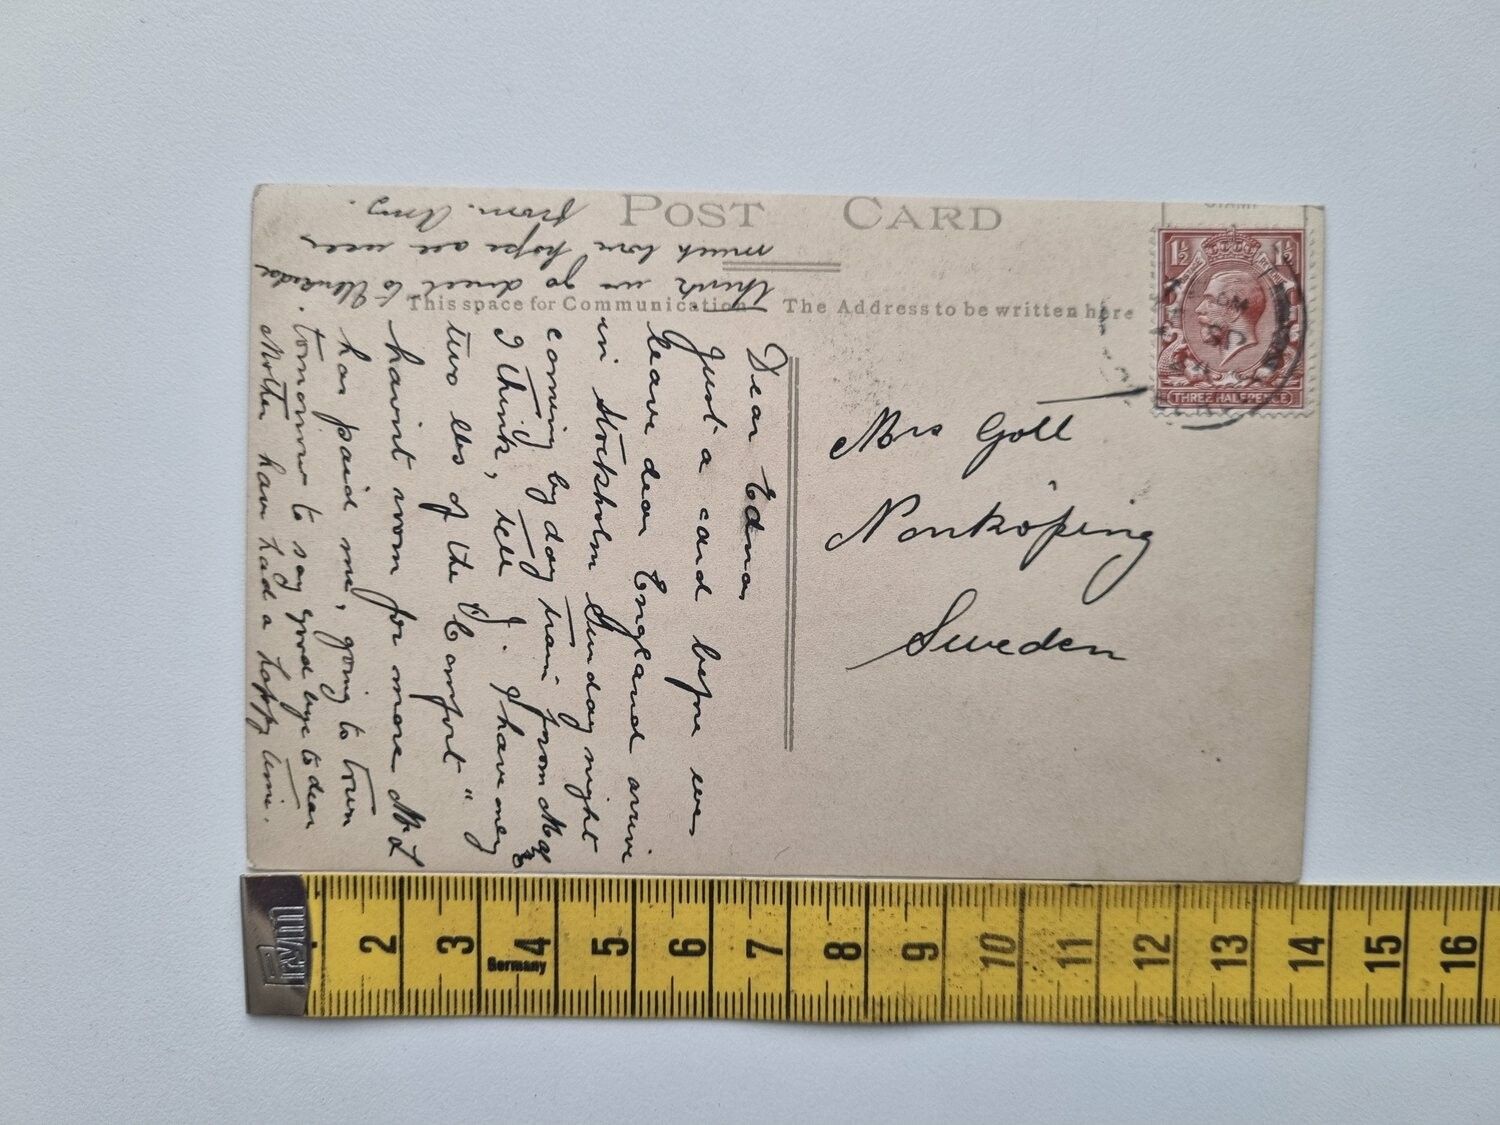 POST CARD
This space for Communication
The Address to be written here
STAMP
1½ 1½
THREE HALFPENCE
Mrs Goll
Norrköping
Sweden
Dear Edna
Just a card before we
leave dear England arrive
in Stockholm Sunday night
coming by day train from
I think, tell J. I have only
two lbs of the "Comfort"
havint room for more
has paid me, going to town
tomorrow to say good bye to dear
Mother have had a happy time.
Think we go direct to
much love hope all well
from. Amy.
Germany
2 3 4 5 6 7 8 9 10 11 12 13 14 15 16